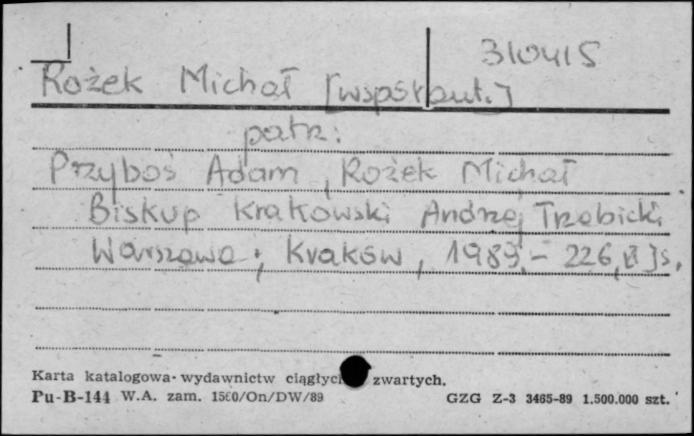 310415
Rożek Michał [współaut.]
patrz:
Przyboś Adam, Rożek Michał
Biskup krakowski Andrzej Trzebicki
Warszawa; Kraków, 1989.- 226, s.
Karta katalogowa-wydawnictw zwartych.
Pu-B-144 W.A. zam. 1560/On/DW/89
GZG Z-3 3465-89 1.500.000 szt.